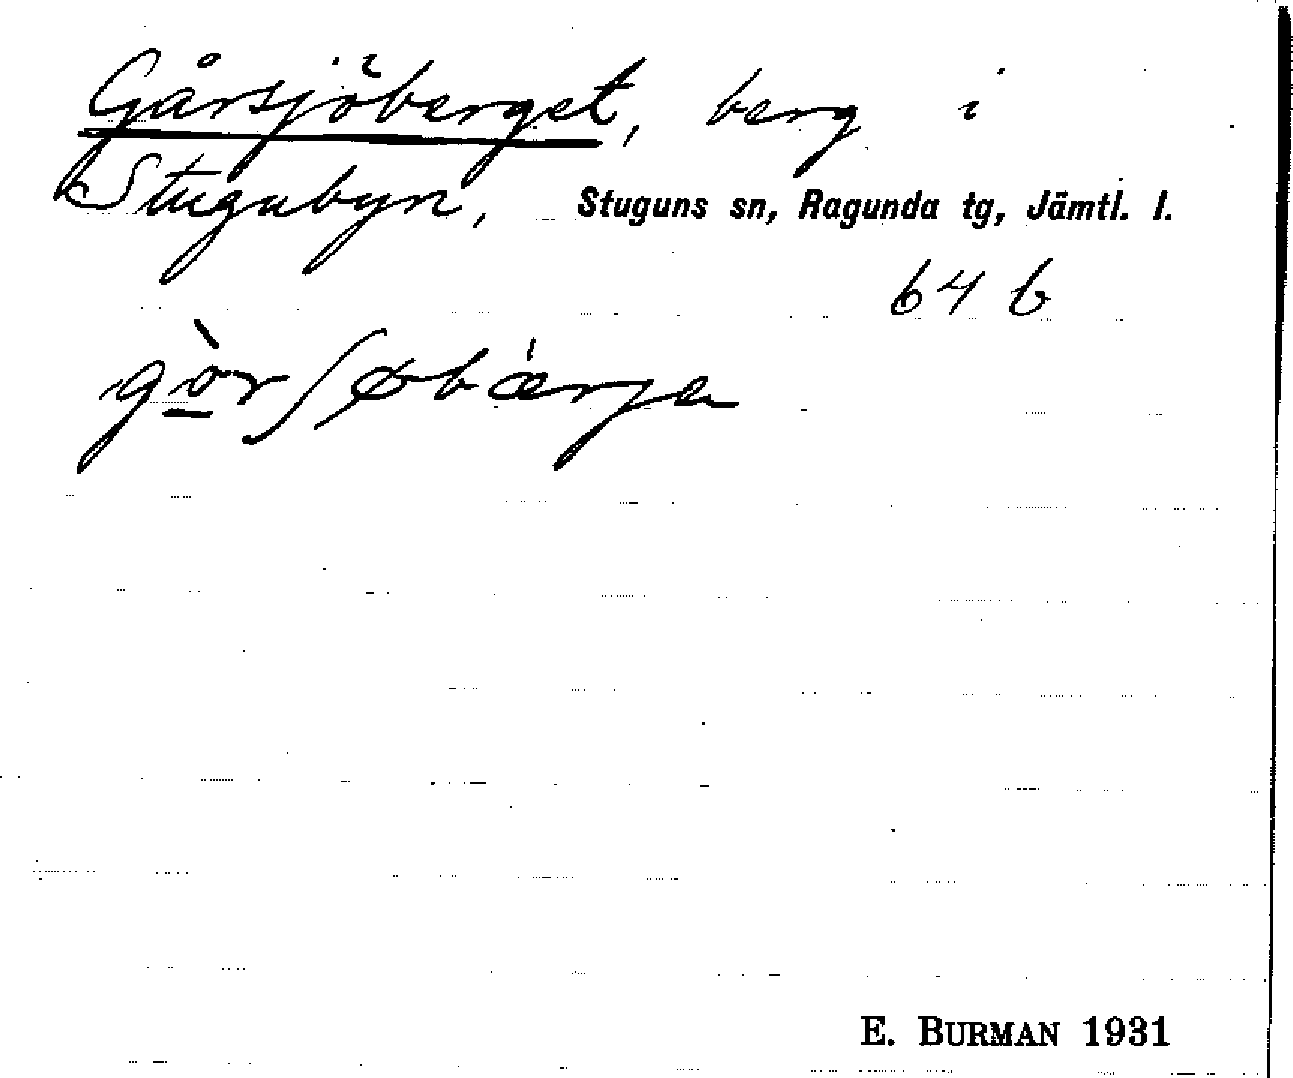 Gårsjöberget, berg i
Stugubyn, Stuguns sn, Ragunda tg, Jämtl. l.
64 b
gò̲rʃøbǽrjə
E. BURMAN 1931